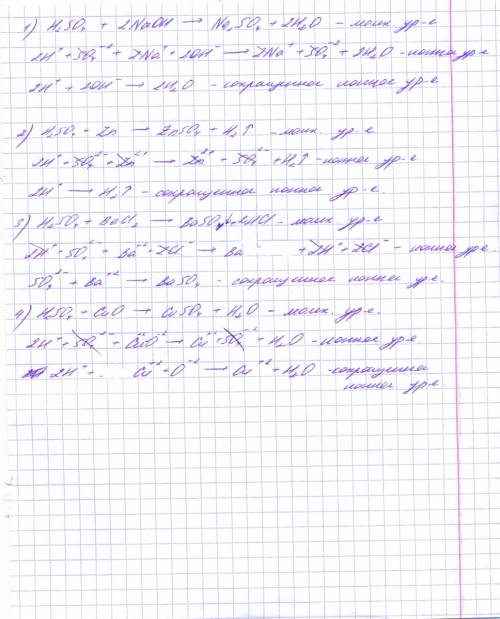 1) H₂SO₄ + 2NaOH → Na₂SO₄ + 2H₂O – молек. ур-е
2H⁺ + SO₄⁻² + 2Na⁺ + 2OH⁻ → 2Na⁺ + SO₄⁻² + 2H₂O - ионное ур-е
2H⁺ + 2OH⁻ → 2H₂O - сокращенное ионное ур-е
2) H₂SO₄ + Zn → ZnSO₄ + H₂↑ - молек. ур-е
2H⁺ + SO₄²⁻ + Zn²⁺ → Zn²⁺ + SO₄⁻² + H₂↑ - ионное ур-е
2H⁺ → H₂↑ - сокращенное ионное ур-е.
3) H₂SO₄ + BaCl₂ → BaSO₄↓ + 2HCl - молек. ур-е
2H⁺ + SO₄²⁻ + Ba⁺² + 2Cl⁻ → Ba + 2H⁺ + 2Cl⁻ - ионное ур-е.
SO₄²⁻ + Ba⁺² → BaSO₄ - сокращенное ионное ур-е.
4) H₂SO₄ + CuO → CuSO₄ + H₂O - молек. ур-е.
2H⁺ + SO₄²⁻ + Cu⁺²O⁻² → Cu⁺² + SO₄⁻² + H₂O - ионное ур-е
2H⁺ + Cu⁺² + O⁻² → Cu⁺² + H₂O - сокращенное
ионное ур-е